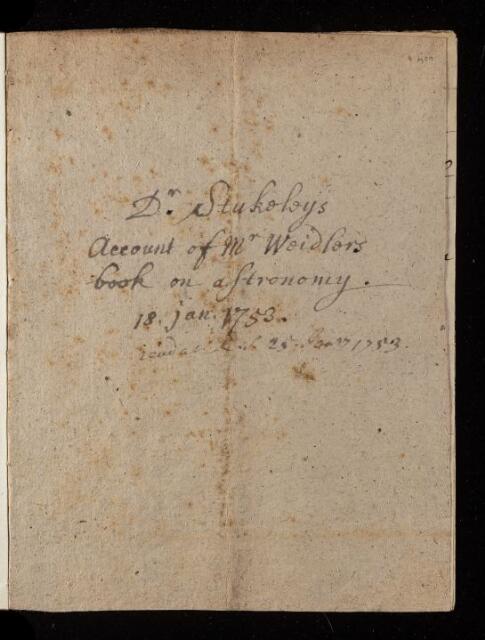 Dr Stukeleys
Account of Mr Weidlers
book on astronomy.
18. jan. 1753.
25. 1753.